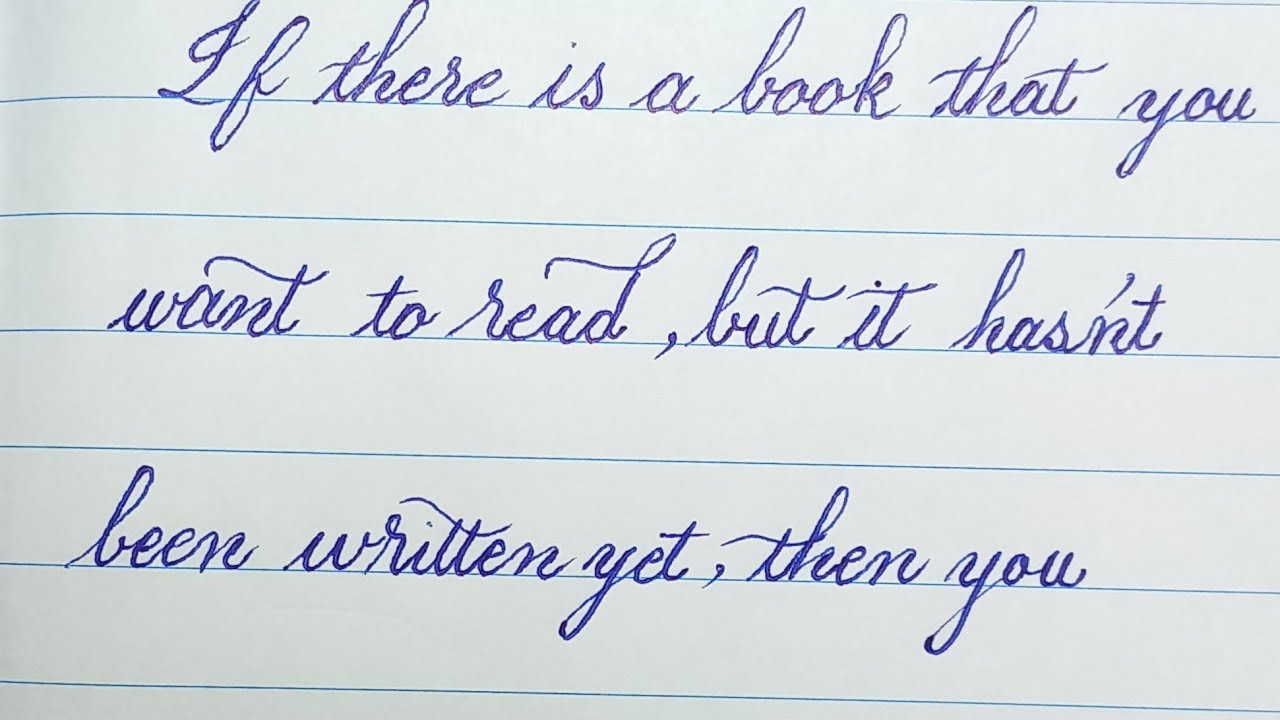 If there is a book that you
want to read, but it hasn't
been written yet, then you